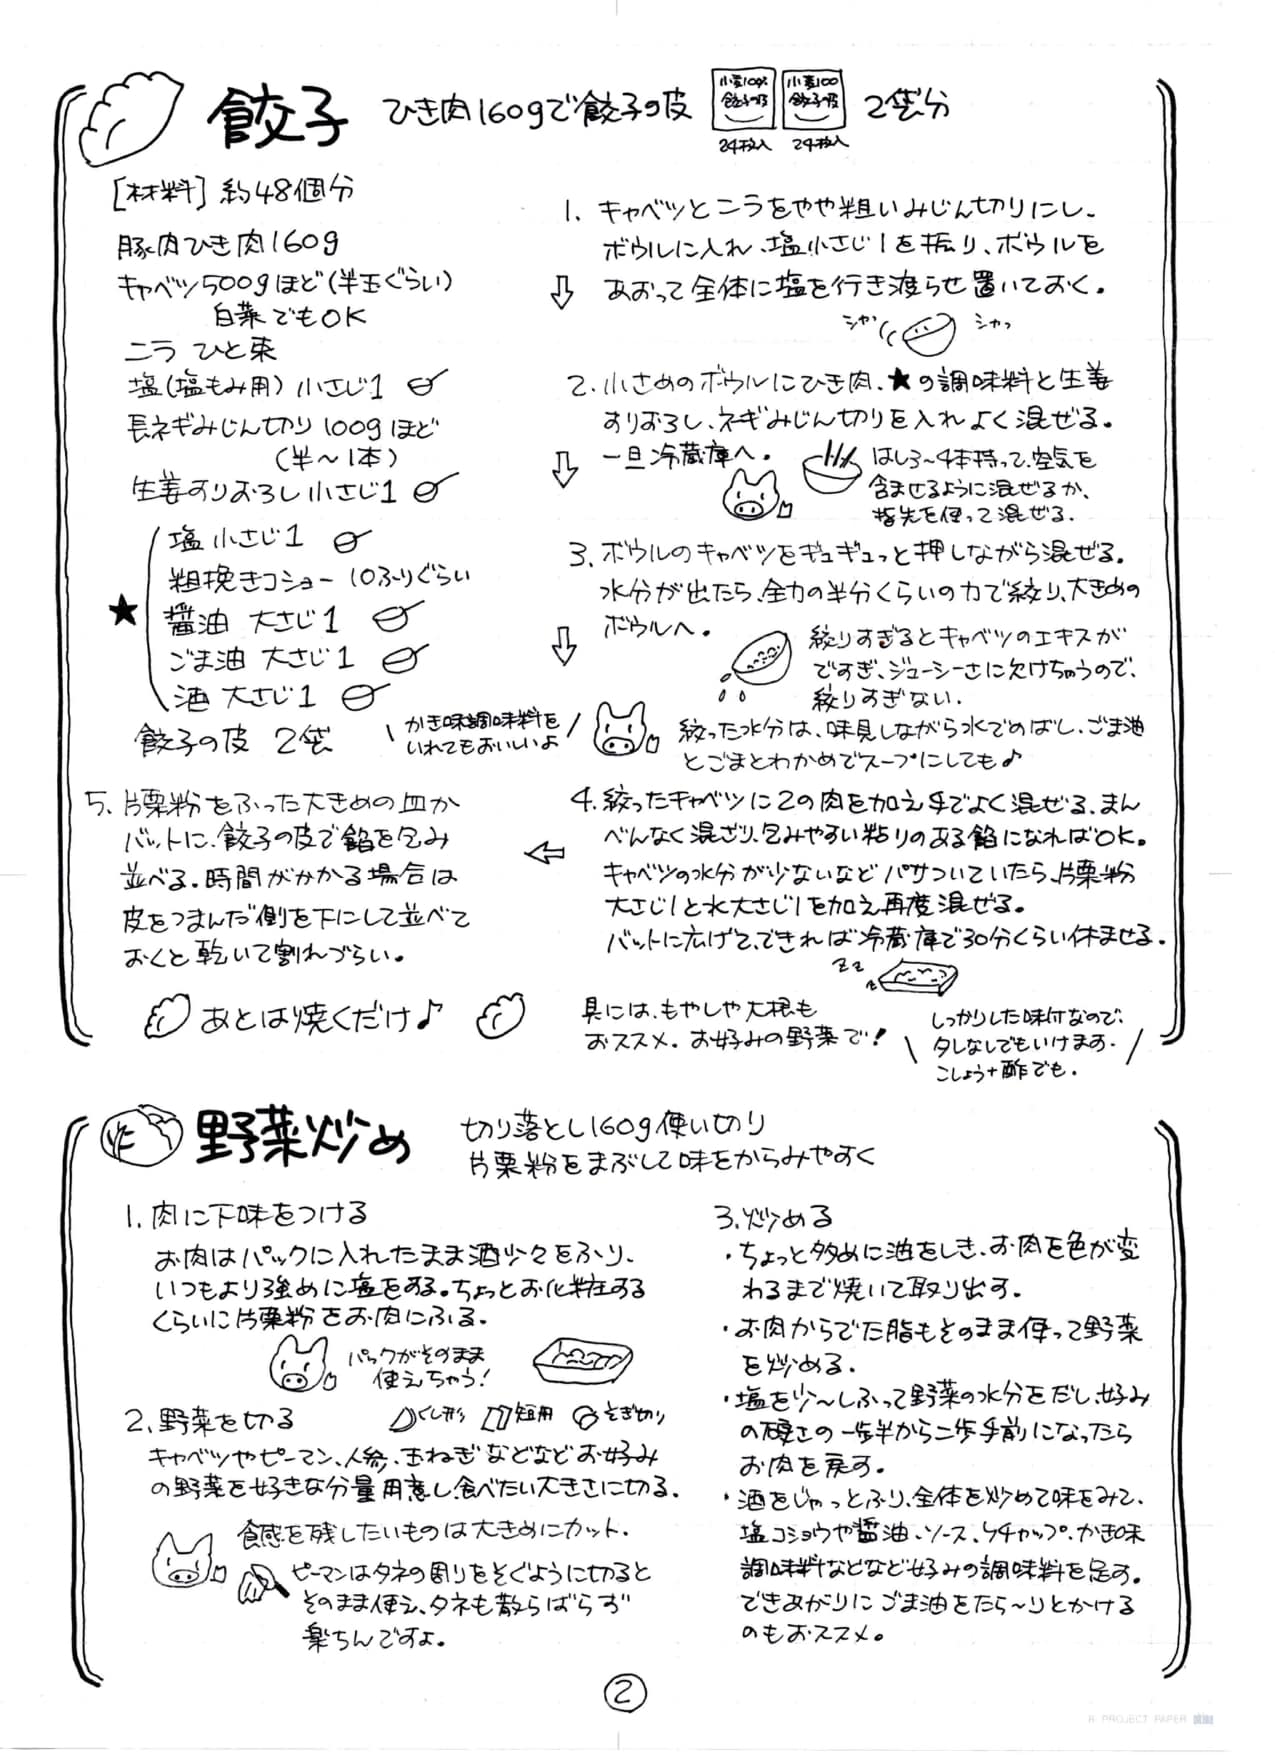 餃子 ひき肉160gで餃子の皮 2袋分
小麦100% 餃子の皮
24枚入
小麦100 餃子の皮
24枚入
[材料] 約48個分
豚肉ひき肉160g
キャベツ500gほど(半玉ぐらい)
白菜でもOK
ニラ ひと束
塩(塩もみ用) 小さじ1
長ネギみじん切り 100gほど
(半〜1本)
生姜すりおろし 小さじ1
★
塩 小さじ1
粗挽きコショー 10ふりぐらい
醤油 大さじ1
ごま油 大さじ1
酒 大さじ1
餃子の皮 2袋
かき味調味料を
いれてもおいしいよ
1. キャベツとニラをやや粗いみじん切りにし、
ボウルに入れ、塩小さじ1を振り、ボウルを
あおって全体に塩を行き渡らせ置いておく。
シャカ シャカっ
2. 小さめのボウルにひき肉、★の調味料と生姜
すりおろし、ネギみじん切りを入れよく混ぜる。
一旦冷蔵庫へ。
はし3〜4本持って、空気を
含ませるように混ぜるか、
指先を使って混ぜる。
3. ボウルのキャベツをギュギュっと押しながら混ぜる。
水分が出たら、全力の半分くらいの力で絞り、大きめの
ボウルへ。
絞りすぎるとキャベツのエキスが
ですぎ、ジューシーさに欠けちゃうので、
絞りすぎない。
絞った水分は、味見しながら水でのばし、ごま油
とごまとわかめでスープにしても♪
4. 絞ったキャベツに2の肉を加え手でよく混ぜる。まん
べんなく混ざり、包みやすい粘りのある餡になればOK。
キャベツの水分が少ないなどパサついていたら、片栗粉
大さじ1と水大さじ1を加え再度混ぜる。
バットに広げて、できれば冷蔵庫で30分くらい休ませる。
zzz
具には、もやしや大根も
おススメ。お好みの野菜で!
しっかりした味付なので、
タレなしでもいけます。
こしょう+酢でも。
5. 片栗粉をふった大きめの皿か
バットに、餃子の皮で餡を包み
並べる。時間がかかる場合は
皮をつまんだ側を下にして並べて
おくと乾いて割れづらい。
あとは焼くだけ♪
野菜炒め 切り落とし160g使い切り
片栗粉をまぶして味をからみやすく
1. 肉に下味をつける
お肉はパックに入れたまま酒少々をふり、
いつもより強めに塩をする。ちょっとお化粧する
くらいに片栗粉をお肉にふる。
パックがそのまま
使えちゃう!
2. 野菜を切る くし形 短冊 そぎ切り
キャベツやピーマン、人参、玉ねぎなどなどお好み
の野菜を好きな分量用意し、食べたい大きさに切る。
食感を残したいものは大きめにカット。
ピーマンはタネの周りをそぐように切ると
そのまま使え、タネも散らばらず
楽ちんですよ。
3. 炒める
・ちょっと多めに油をしき、お肉を色が変
わるまで焼いて取り出す。
・お肉からでた脂もそのまま使って野菜
を炒める。
・塩を少〜しふって野菜の水分をだし、好み
の硬さの一歩半から二歩手前になったら
お肉を戻す。
・酒をじゃっとふり、全体を炒めて味をみて、
塩コショウや醤油、ソース、ケチャップ、かき味
調味料などなど好みの調味料を足す。
できあがりにごま油をたら〜りとかける
のもおススメ。
②
R PROJECT PAPER